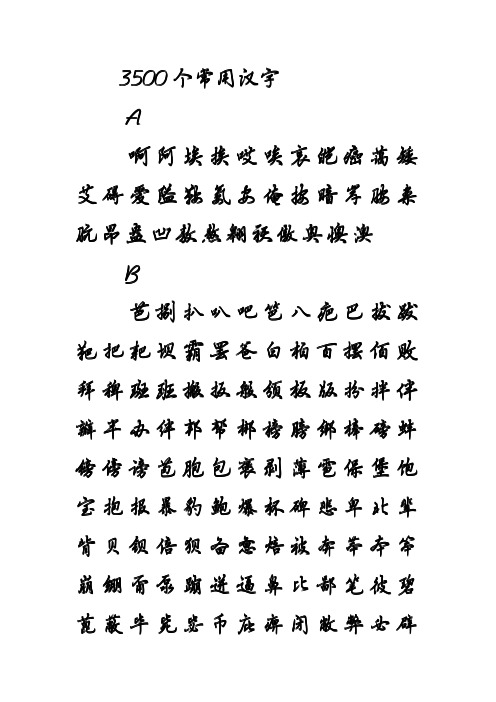 3500个常用汉字
A
啊阿埃挨哎唉哀皑癌蔼矮
艾碍爱隘鞍氨安俺按暗岸胺案
肮昂盎凹敖熬翱袄傲奥懊澳
B
芭捌扒叭吧笆八疤巴拔跋
靶把耙坝霸罢爸白柏百摆佰败
拜稗斑班搬扳般颁板版扮拌伴
瓣半办绊邦帮梆榜膀绑棒磅蚌
镑傍谤苞胞包褒剥薄雹保堡饱
宝抱报暴豹鲍爆杯碑悲卑北辈
背贝钡倍狈备惫焙被奔苯本笨
崩绷甭泵蹦迸逼鼻比鄙笔彼碧
蓖蔽毕毙毖币庇痹闭敝弊必辟